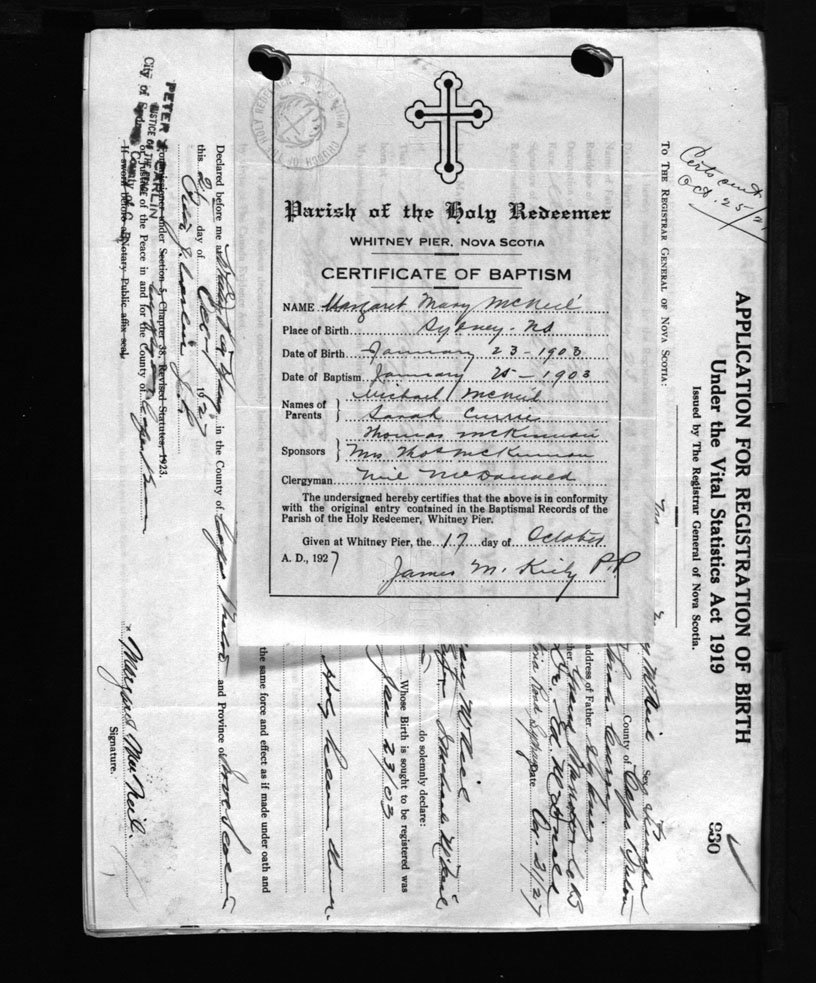 Parish of the Holy Redeemer
WHITNEY PIER, NOVA SCOTIA
CERTIFICATE OF BAPTISM
NAME Margaret Mary McNeil
Place of Birth Sydney - NS
Date of Birth January 23 - 1903
Date of Baptism January 25 - 1903
Names of Parents Michael McNeil
Sarah Currie
Sponsors Thomas McKinnon
Mrs Thos McKinnon
Clergyman Neil McDonald
The undersigned hereby certifies that the above is in conformity
with the original entry contained in the Baptismal Records of the
Parish of the Holy Redeemer, Whitney Pier.
Given at Whitney Pier, the 17 day of October
A. D., 1927
James M. Kiely P.P.
Certs out
Oct. 25/27
APPLICATION FOR REGISTRATION OF BIRTH
930
Under the Vital Statistics Act 1919
Issued by The Registrar General of Nova Scotia.
TO THE REGISTRAR GENERAL OF NOVA SCOTIA:
McNeil Sex
County of Cape Breton
address of Father Sydney
Dr. Ed. McDonald
Date Oct 21/27
do solemnly declare:
Whose Birth is sought to be registered was
Jan 23/03
the same force and effect as if made under oath and
Declared before me at in the County of Cape Breton and Province of Nova Scotia
this 21 day of Oct 1927
Peter J. Carlin J.P.
PETER J. CARLIN
JUSTICE OF THE PEACE
Commissioner under Section 5, Chapter 38, Revised Statutes, 1923.
or Justice of the Peace in and for the County of Cape Breton
City of Sydney
County of C. B.
If sworn before a Notary Public affix seal.
Margaret MacNeil.
Signature.